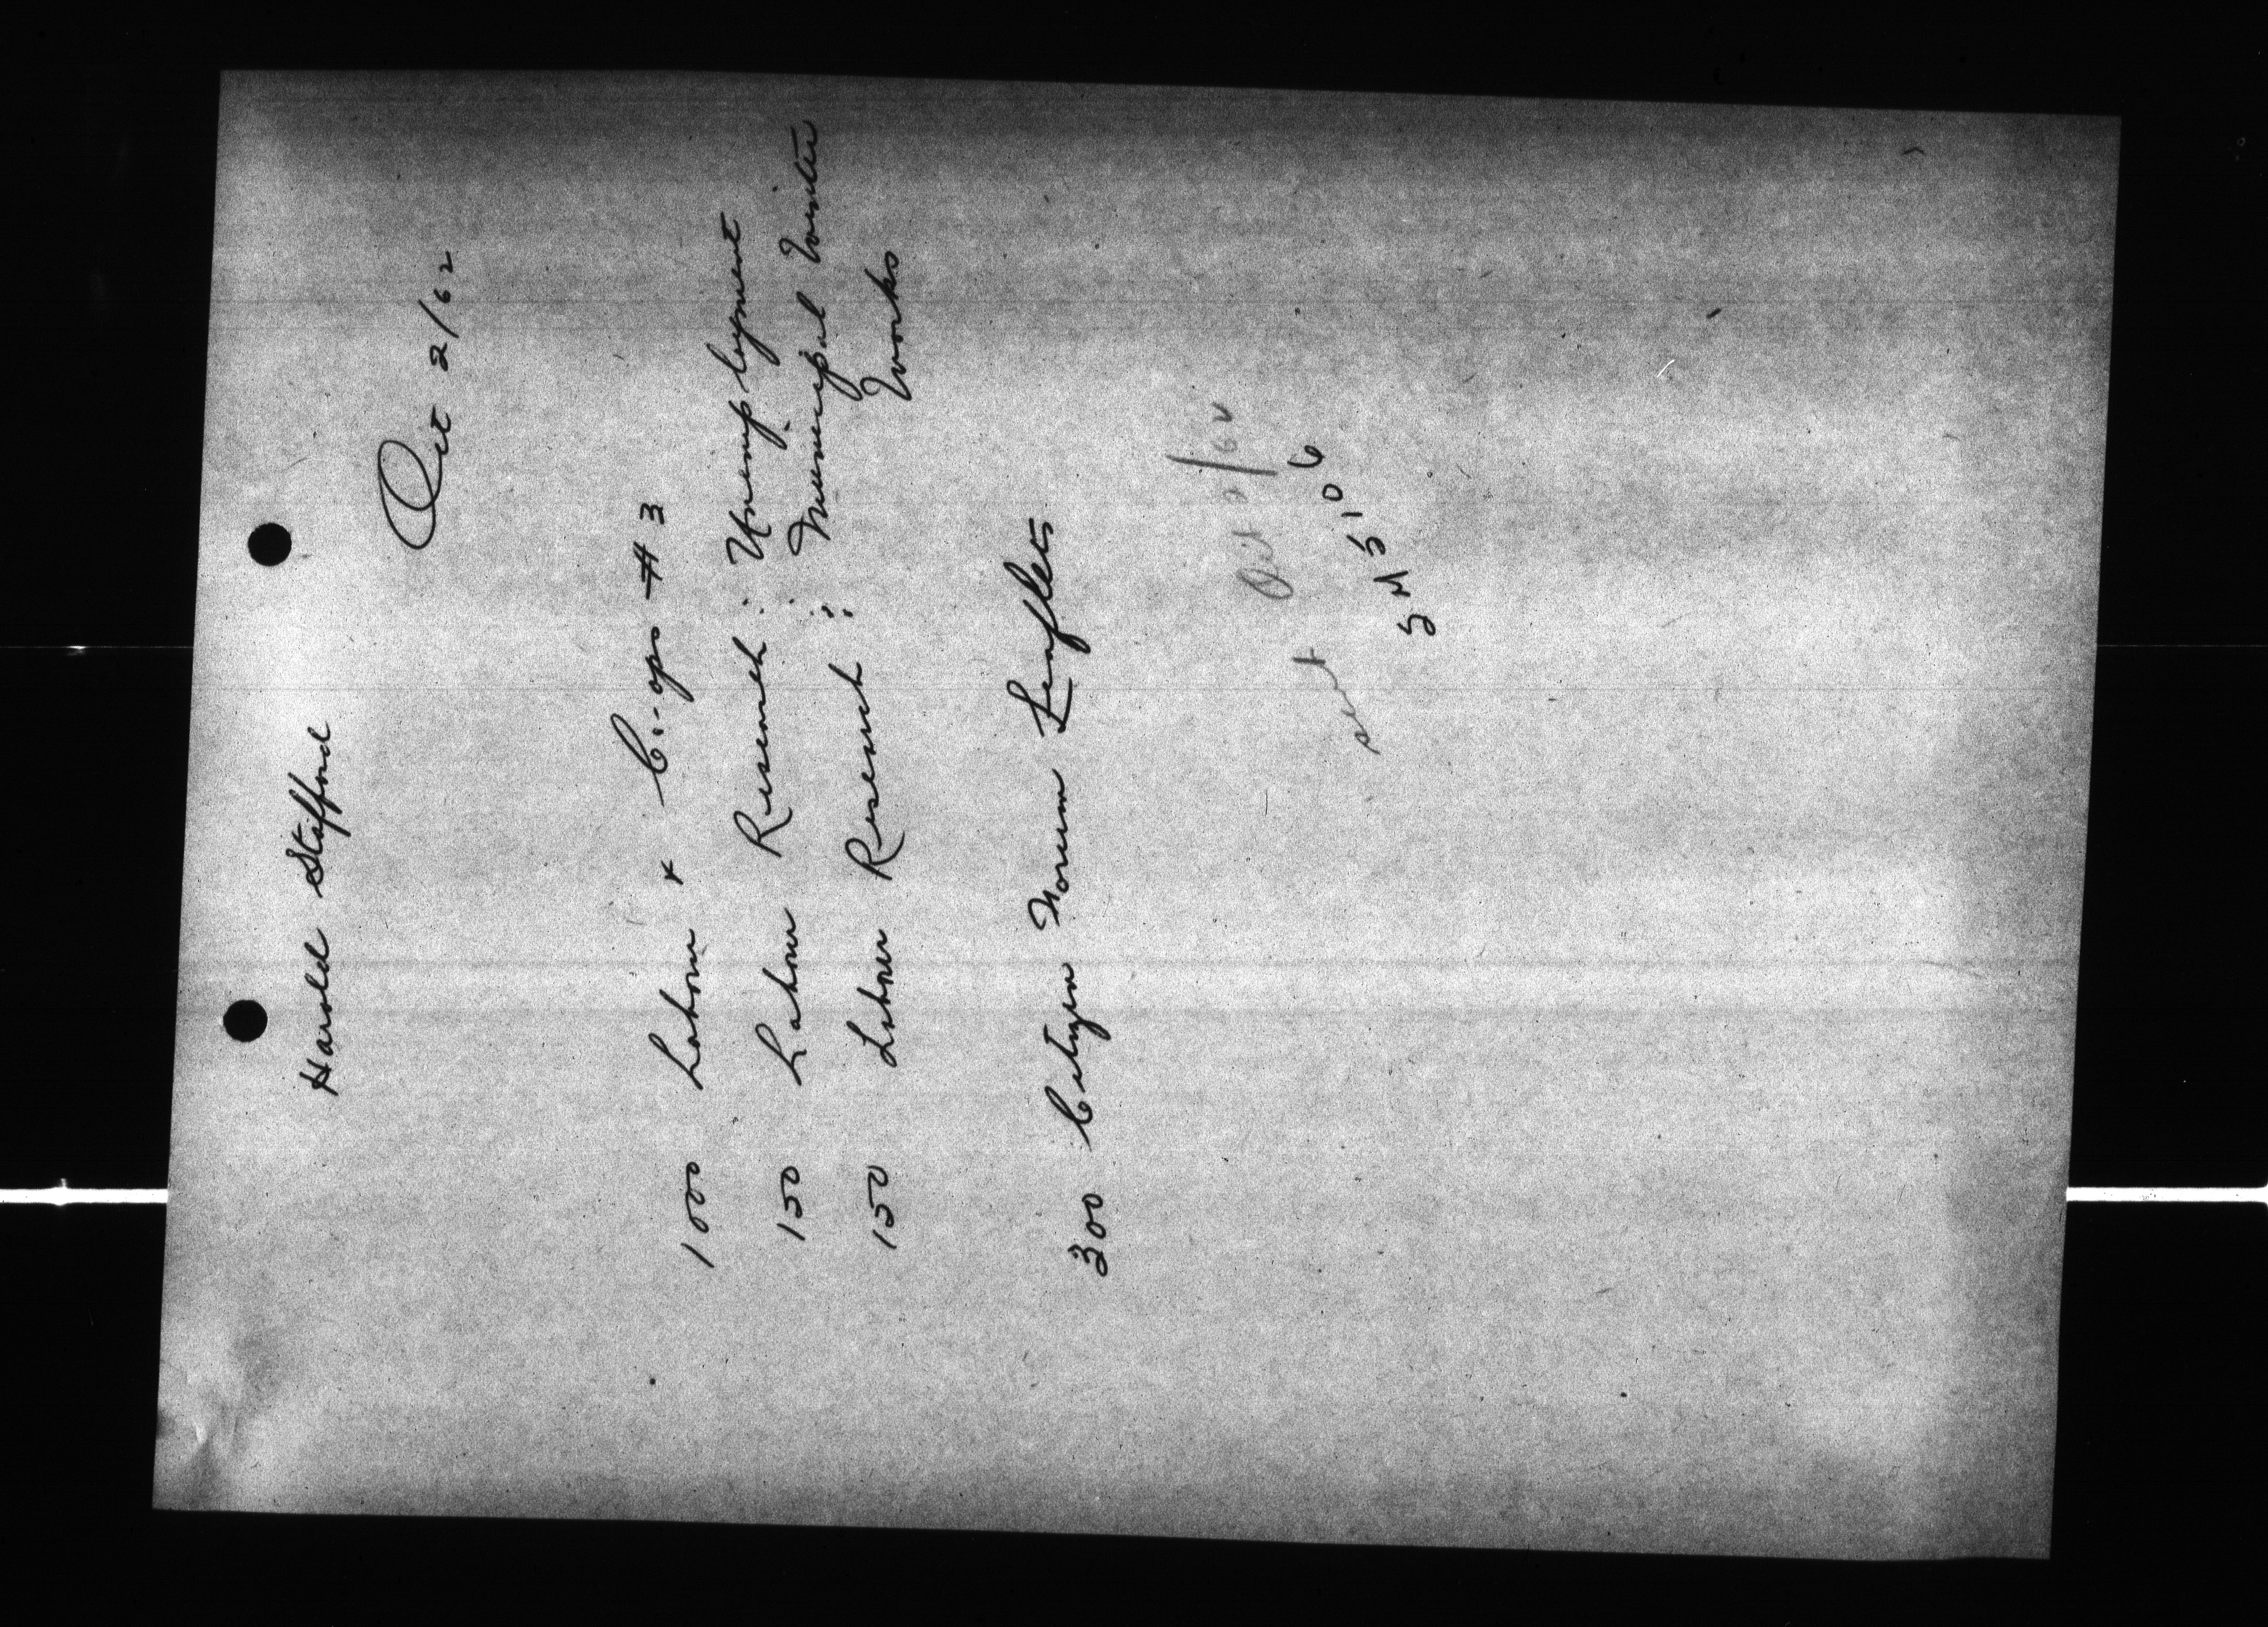 Harold Stafford
Oct 2/62
100 Labour + Co-ops # 3
150 Labour Research : Unemployment
150 Labour Research : Municipal Winter
Works
300 Citizen Forum Leaflets
sent Oct 2/62